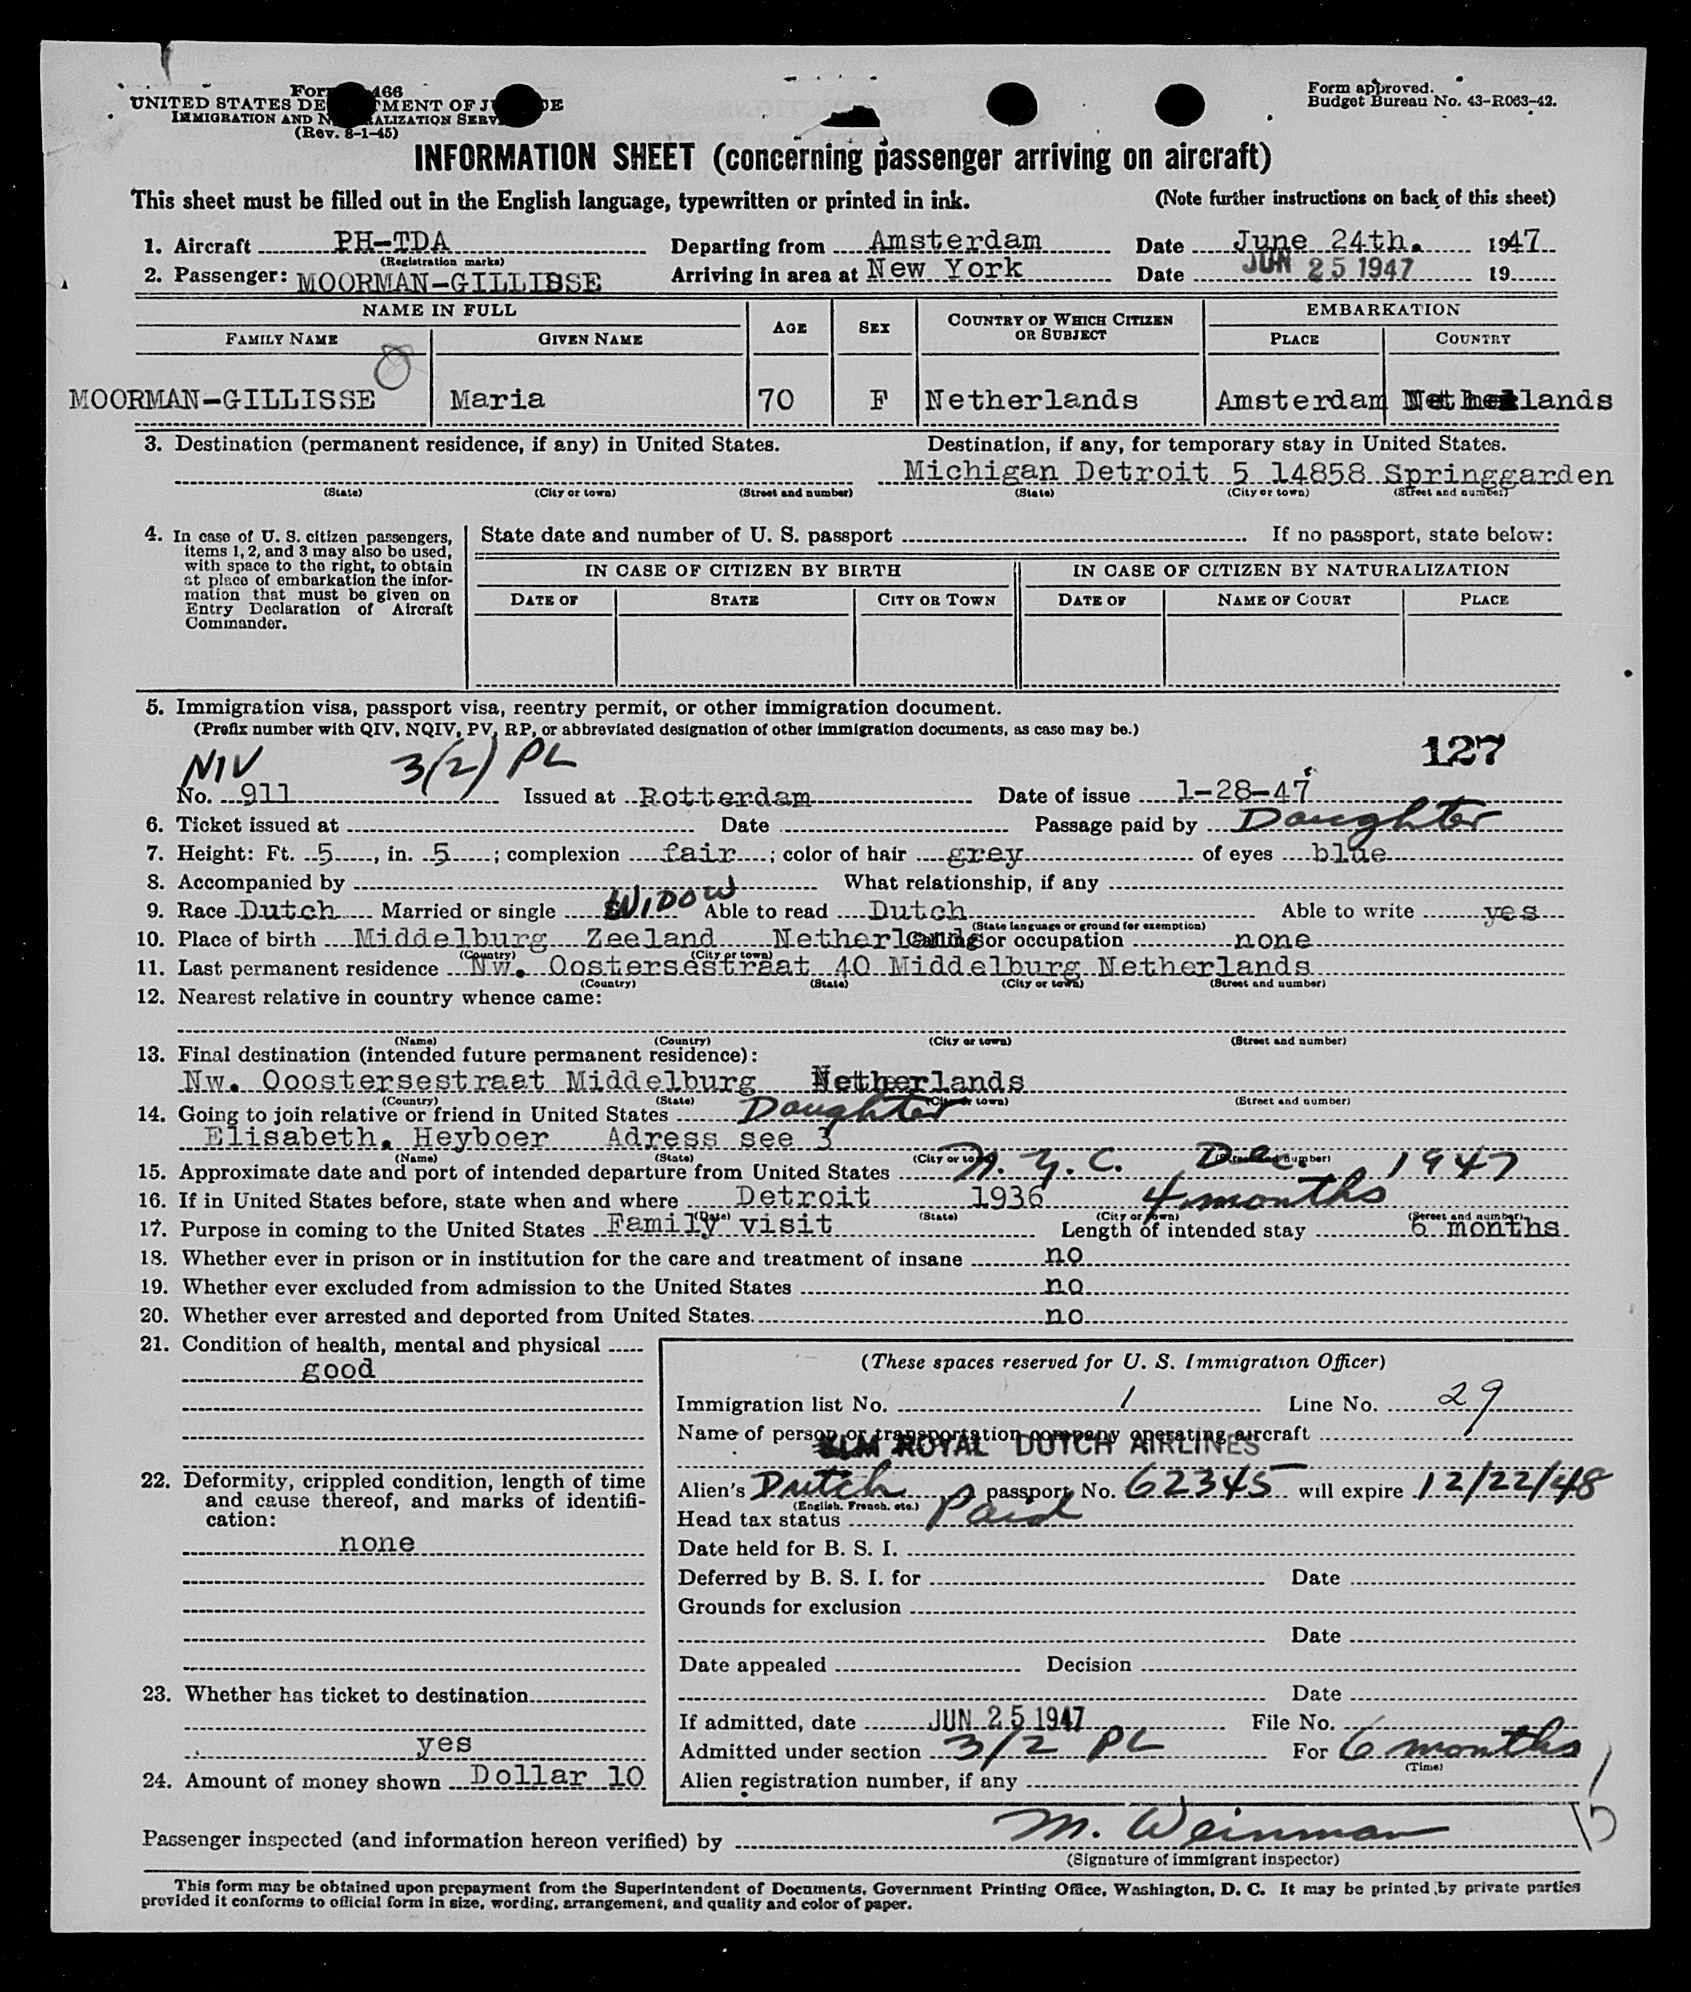 Form 466
UNITED STATES DEPARTMENT OF JUSTICE
IMMIGRATION AND NATURALIZATION SERVICE
(Rev. 8-1-45)
Form approved.
Budget Bureau No. 43-R063-42.
INFORMATION SHEET (concerning passenger arriving on aircraft)
This sheet must be filled out in the English language, typewritten or printed in ink. (Note further instructions on back of this sheet)
1. Aircraft PH-TDA Departing from Amsterdam Date June 24th. 1947
(Registration marks)
2. Passenger: MOORMAN-GILLISSE Arriving in area at New York Date JUN 25 1947 19
NAME IN FULL AGE SEX COUNTRY OF WHICH CITIZEN OR SUBJECT EMBARKATION
FAMILY NAME GIVEN NAME PLACE COUNTRY
MOORMAN-GILLISSE Maria 70 F Netherlands Amsterdam Netherlands
3. Destination (permanent residence, if any) in United States. Destination, if any, for temporary stay in United States.
Michigan Detroit 5 14858 Springgarden
(State) (City or town) (Street and number) (State) (City or town) (Street and number)
4. In case of U. S. citizen passengers, items 1, 2, and 3 may also be used, with space to the right, to obtain at place of embarkation the information that must be given on Entry Declaration of Aircraft Commander.
State date and number of U. S. passport If no passport, state below:
IN CASE OF CITIZEN BY BIRTH IN CASE OF CITIZEN BY NATURALIZATION
DATE OF STATE CITY OR TOWN DATE OF NAME OF COURT PLACE
5. Immigration visa, passport visa, reentry permit, or other immigration document.
(Prefix number with QIV, NQIV, PV, RP, or abbreviated designation of other immigration documents, as case may be.)
127
NIV 3(2) PL
No. 911 Issued at Rotterdam Date of issue 1-28-47
6. Ticket issued at Date Passage paid by Daughter
7. Height: Ft. 5, in. 5; complexion fair; color of hair grey of eyes blue
8. Accompanied by What relationship, if any
9. Race Dutch Married or single WIDOW Able to read Dutch Able to write yes
(State language or ground for exemption)
10. Place of birth Middelburg Zeeland Netherlands Calling or occupation none
(Country) (City or town)
11. Last permanent residence Nw. Oostersestraat 40 Middelburg Netherlands
(Country) (State) (City or town) (Street and number)
12. Nearest relative in country whence came:
(Name) (Country) (City or town) (Street and number)
13. Final destination (intended future permanent residence):
Nw. Ooostersestraat Middelburg Netherlands
(Country) (State) (City or town) (Street and number)
14. Going to join relative or friend in United States Daughter
Elisabeth. Heyboer Adress see 3
(Name) (State) (City or town) (Street and number)
15. Approximate date and port of intended departure from United States N.Y.C. Dec. 1947
16. If in United States before, state when and where Detroit 1936 4 months
(Date) (State) (City or town) (Street and number)
17. Purpose in coming to the United States Family visit Length of intended stay 6 months
18. Whether ever in prison or in institution for the care and treatment of insane no
19. Whether ever excluded from admission to the United States no
20. Whether ever arrested and deported from United States. no
21. Condition of health, mental and physical
good
22. Deformity, crippled condition, length of time and cause thereof, and marks of identification:
none
23. Whether has ticket to destination
yes
24. Amount of money shown Dollar 10
(These spaces reserved for U. S. Immigration Officer)
Immigration list No. 1 Line No. 29
Name of person or transportation company operating aircraft
KLM ROYAL DUTCH AIRLINES
Alien's Dutch passport No. 62345 will expire 12/22/48
(English, French, etc.)
Head tax status Paid
Date held for B. S. I.
Deferred by B. S. I. for Date
Grounds for exclusion
Date
Date appealed Decision
Date
If admitted, date JUN 25 1947 File No.
Admitted under section 3/2 PL For 6 months
(Time)
Alien registration number, if any
Passenger inspected (and information hereon verified) by M. Weinman
(Signature of immigrant inspector)
This form may be obtained upon prepayment from the Superintendent of Documents, Government Printing Office, Washington, D. C. It may be printed by private parties
provided it conforms to official form in size, wording, arrangement, and quality and color of paper.